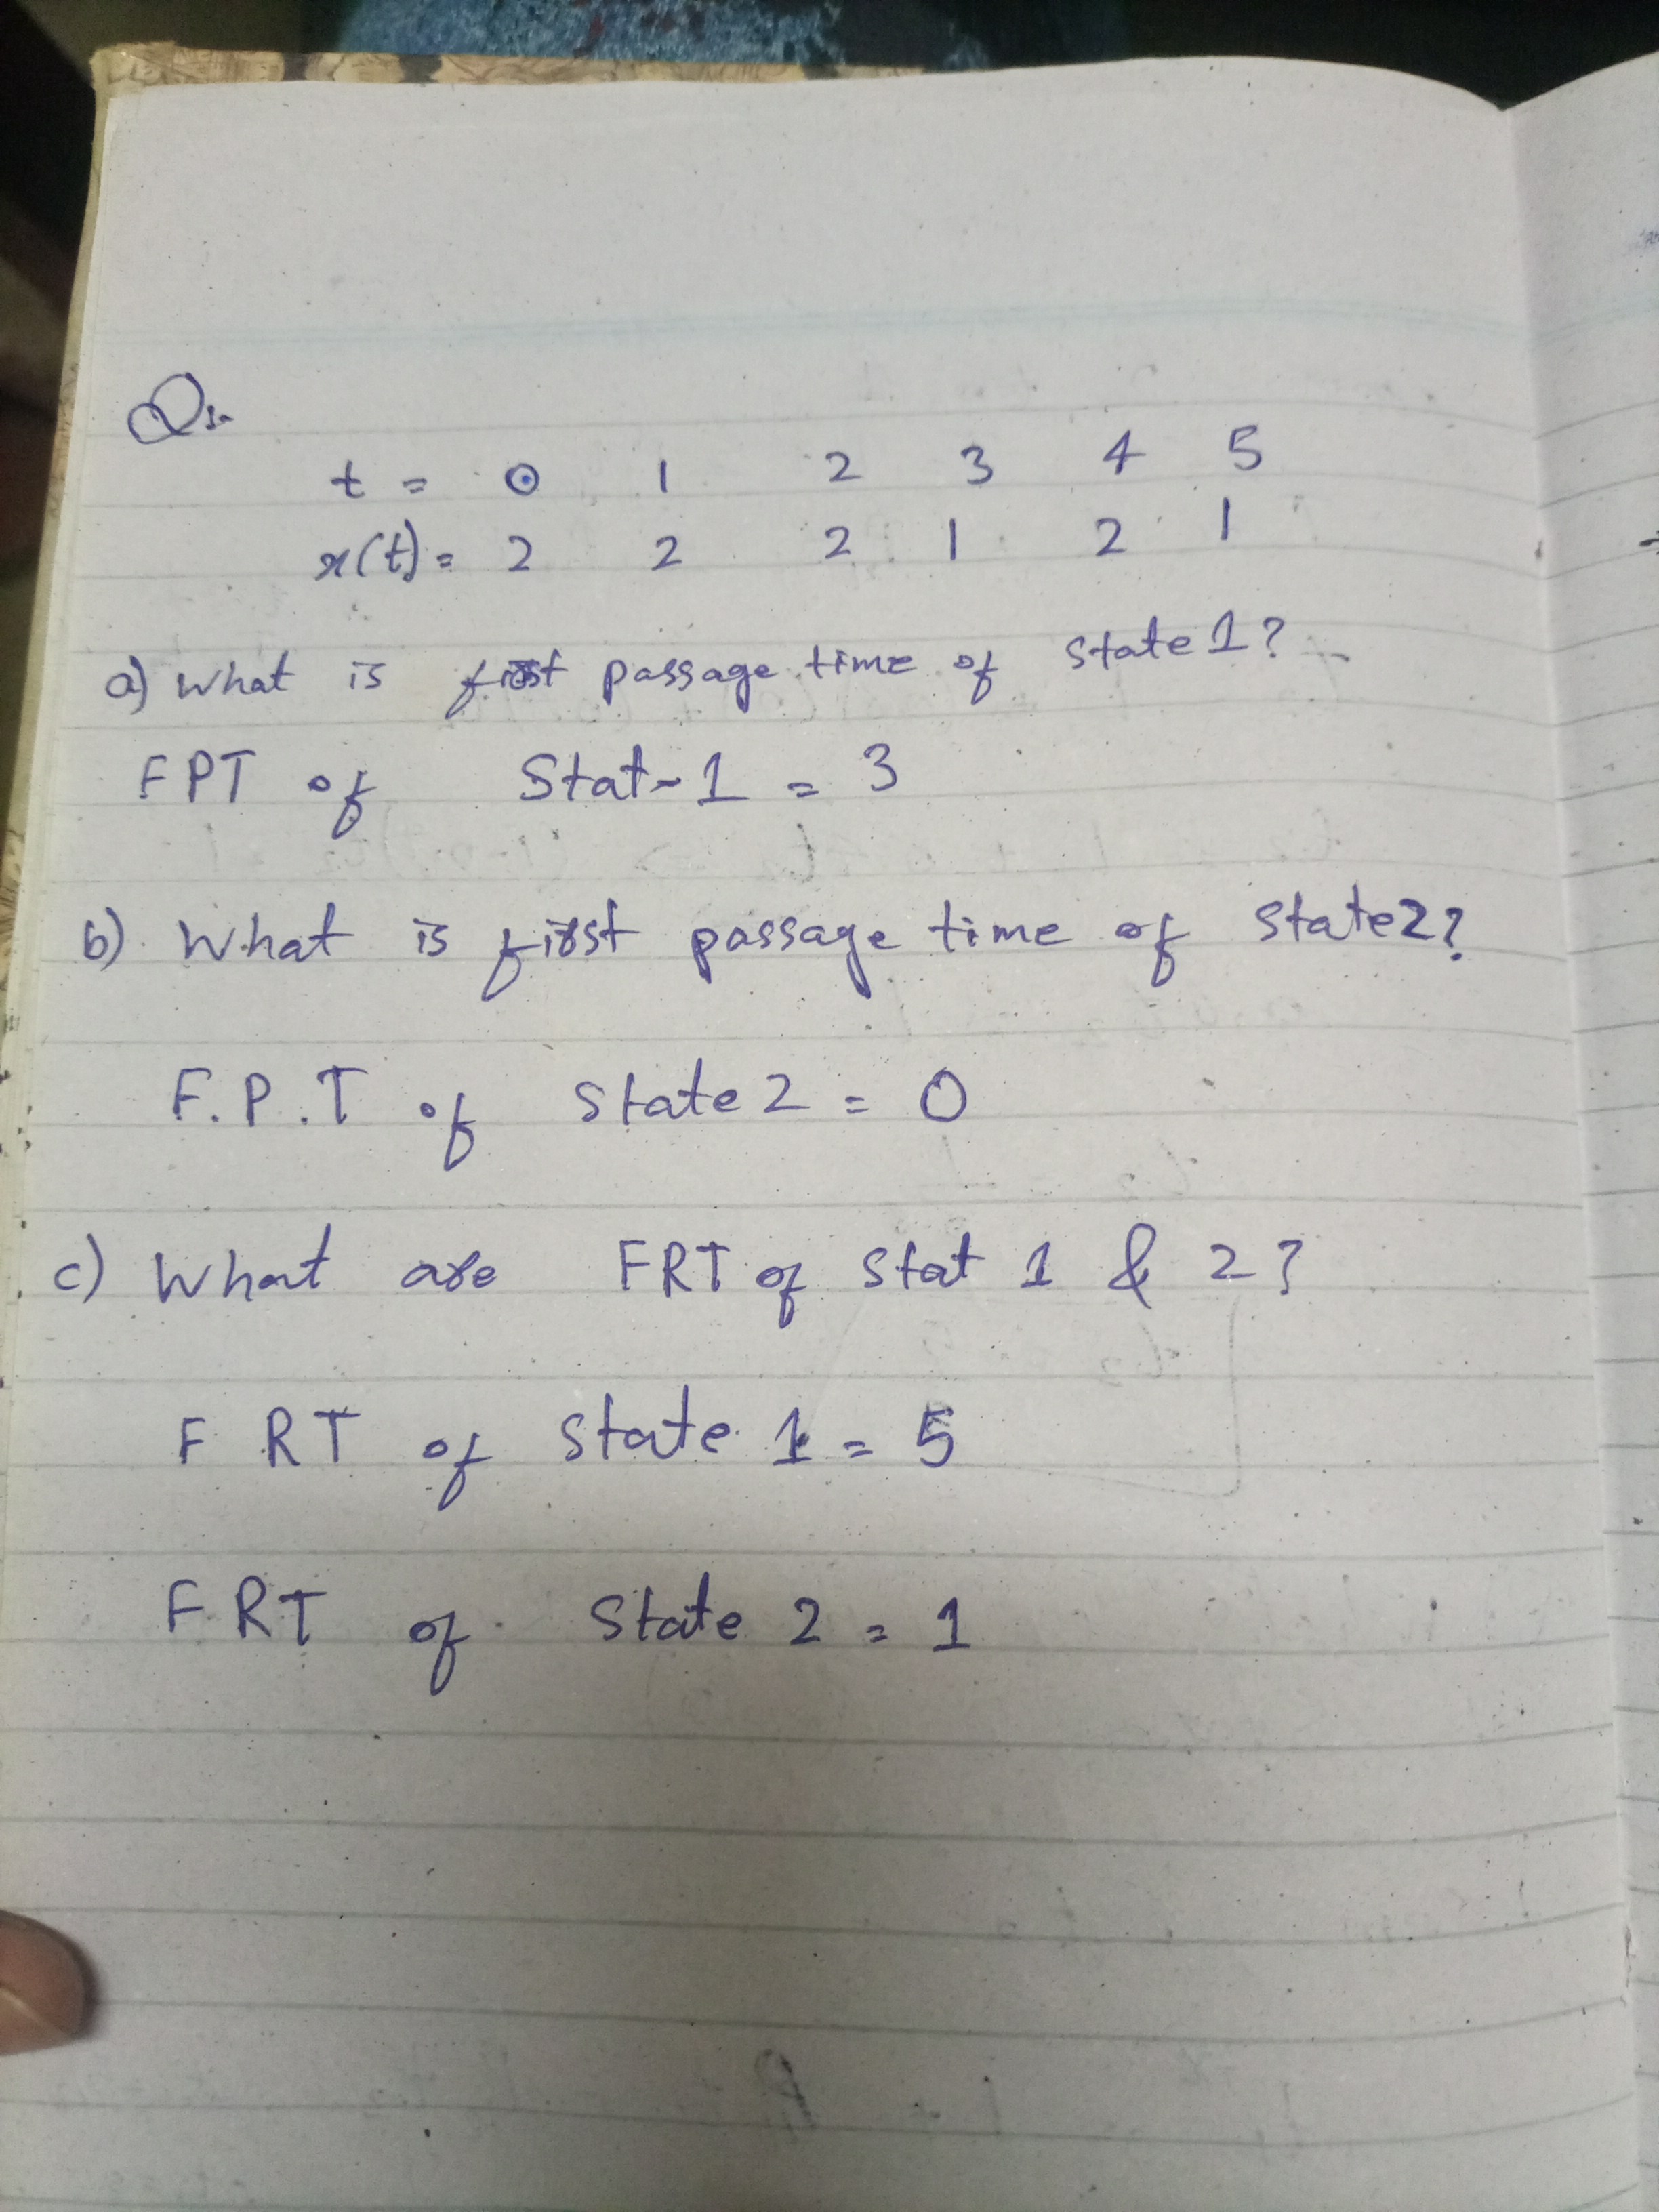 Q1.
t = 0 1 2 3 4 5
x(t) = 2 2 2 1 2 1
a) What is first passage time of state 1?
FPT of Stat-1 = 3
b) What is first passage time of state 2?
F.P.T of state 2 = 0
c) What are FRT of stat 1 & 2?
FRT of state 1 = 5
FRT of state 2 = 1